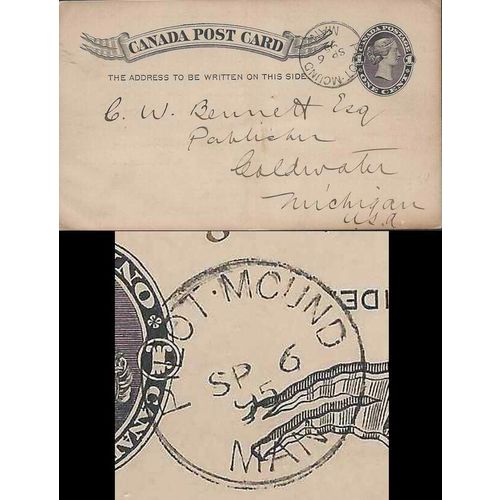 CANADA POST CARD
THE ADDRESS TO BE WRITTEN ON THIS SIDE
PILOT·MOUND
SP 6
95
MAN
CANADA POSTAGE
1 1
ONE CENT
C. W. Bennett Esq
Publisher
Coldwater
Michigan
U.S.A
PILOT·MOUND
SP 6
95
MAN